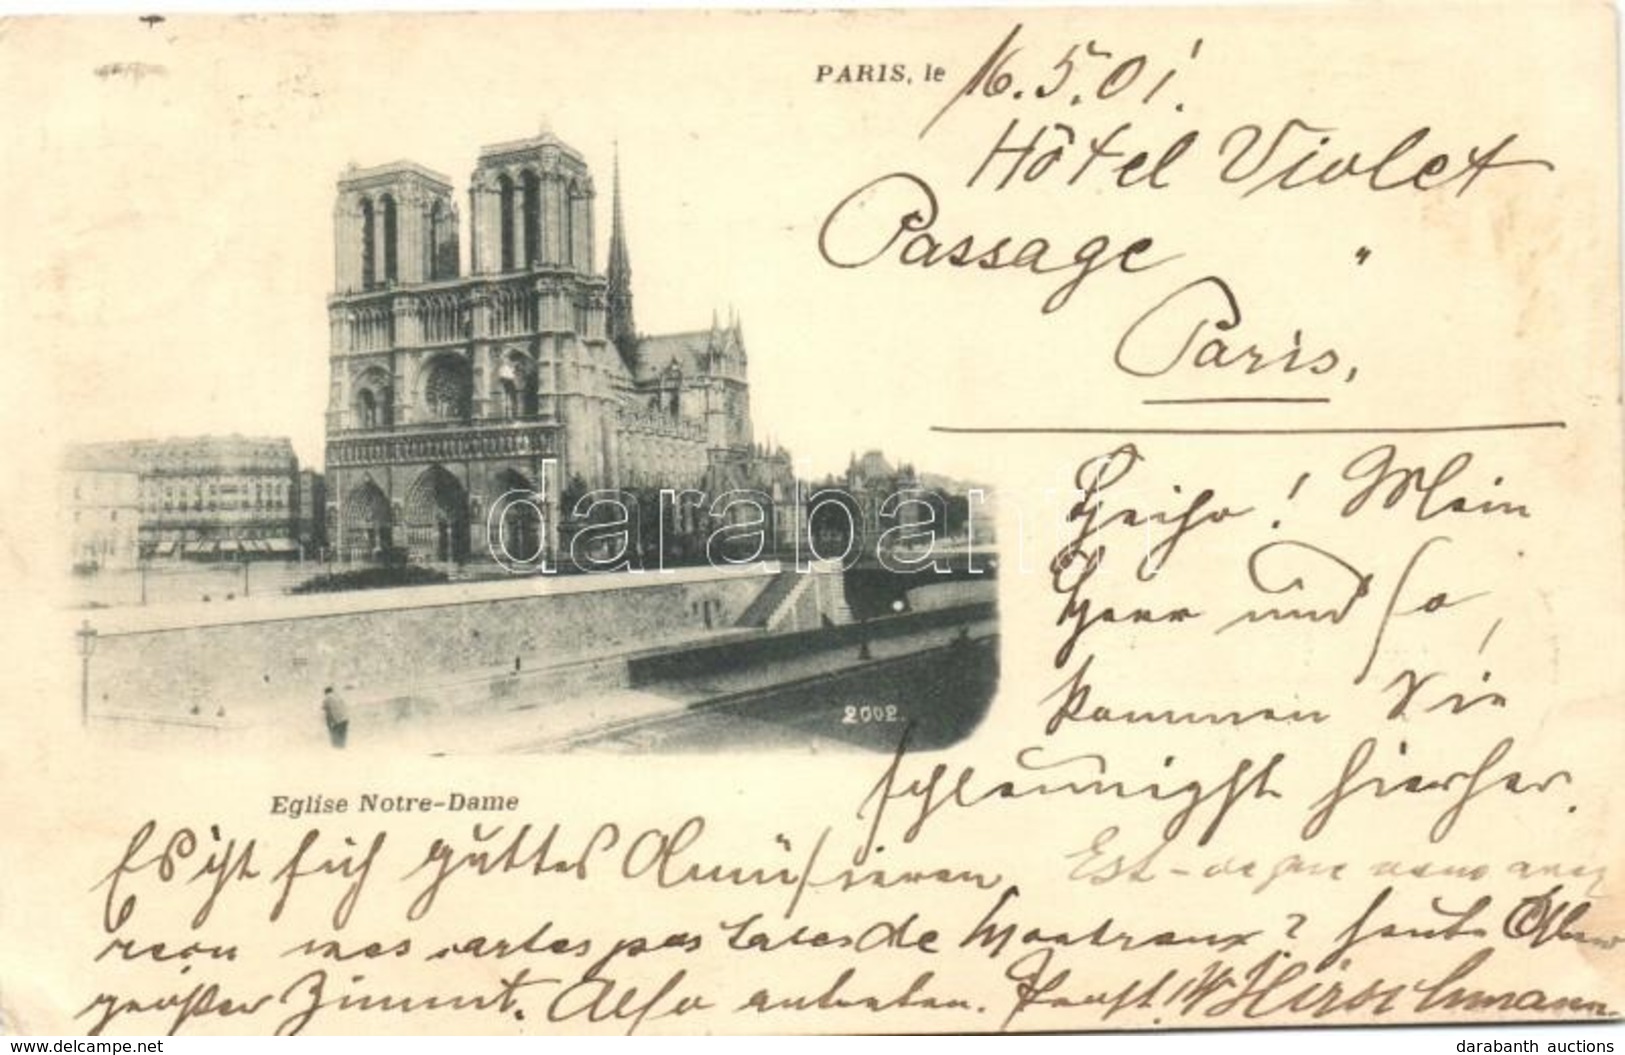 PARIS, le 16.5.01.
Hôtel Violet
Passage "
Paris,
Heiho! Mein
Herr und so,
kommen Sie
schleunigst hierher.
2002.
Eglise Notre-Dame
Es ist sich guttes Amüsieren. Est-ce que vous avez
recu mes cartes de Montreux? heute
großer Zimmt. Also antreten. Prost! W Hirschmann.
darabanth
www.delcampe.net
darabanth auctions